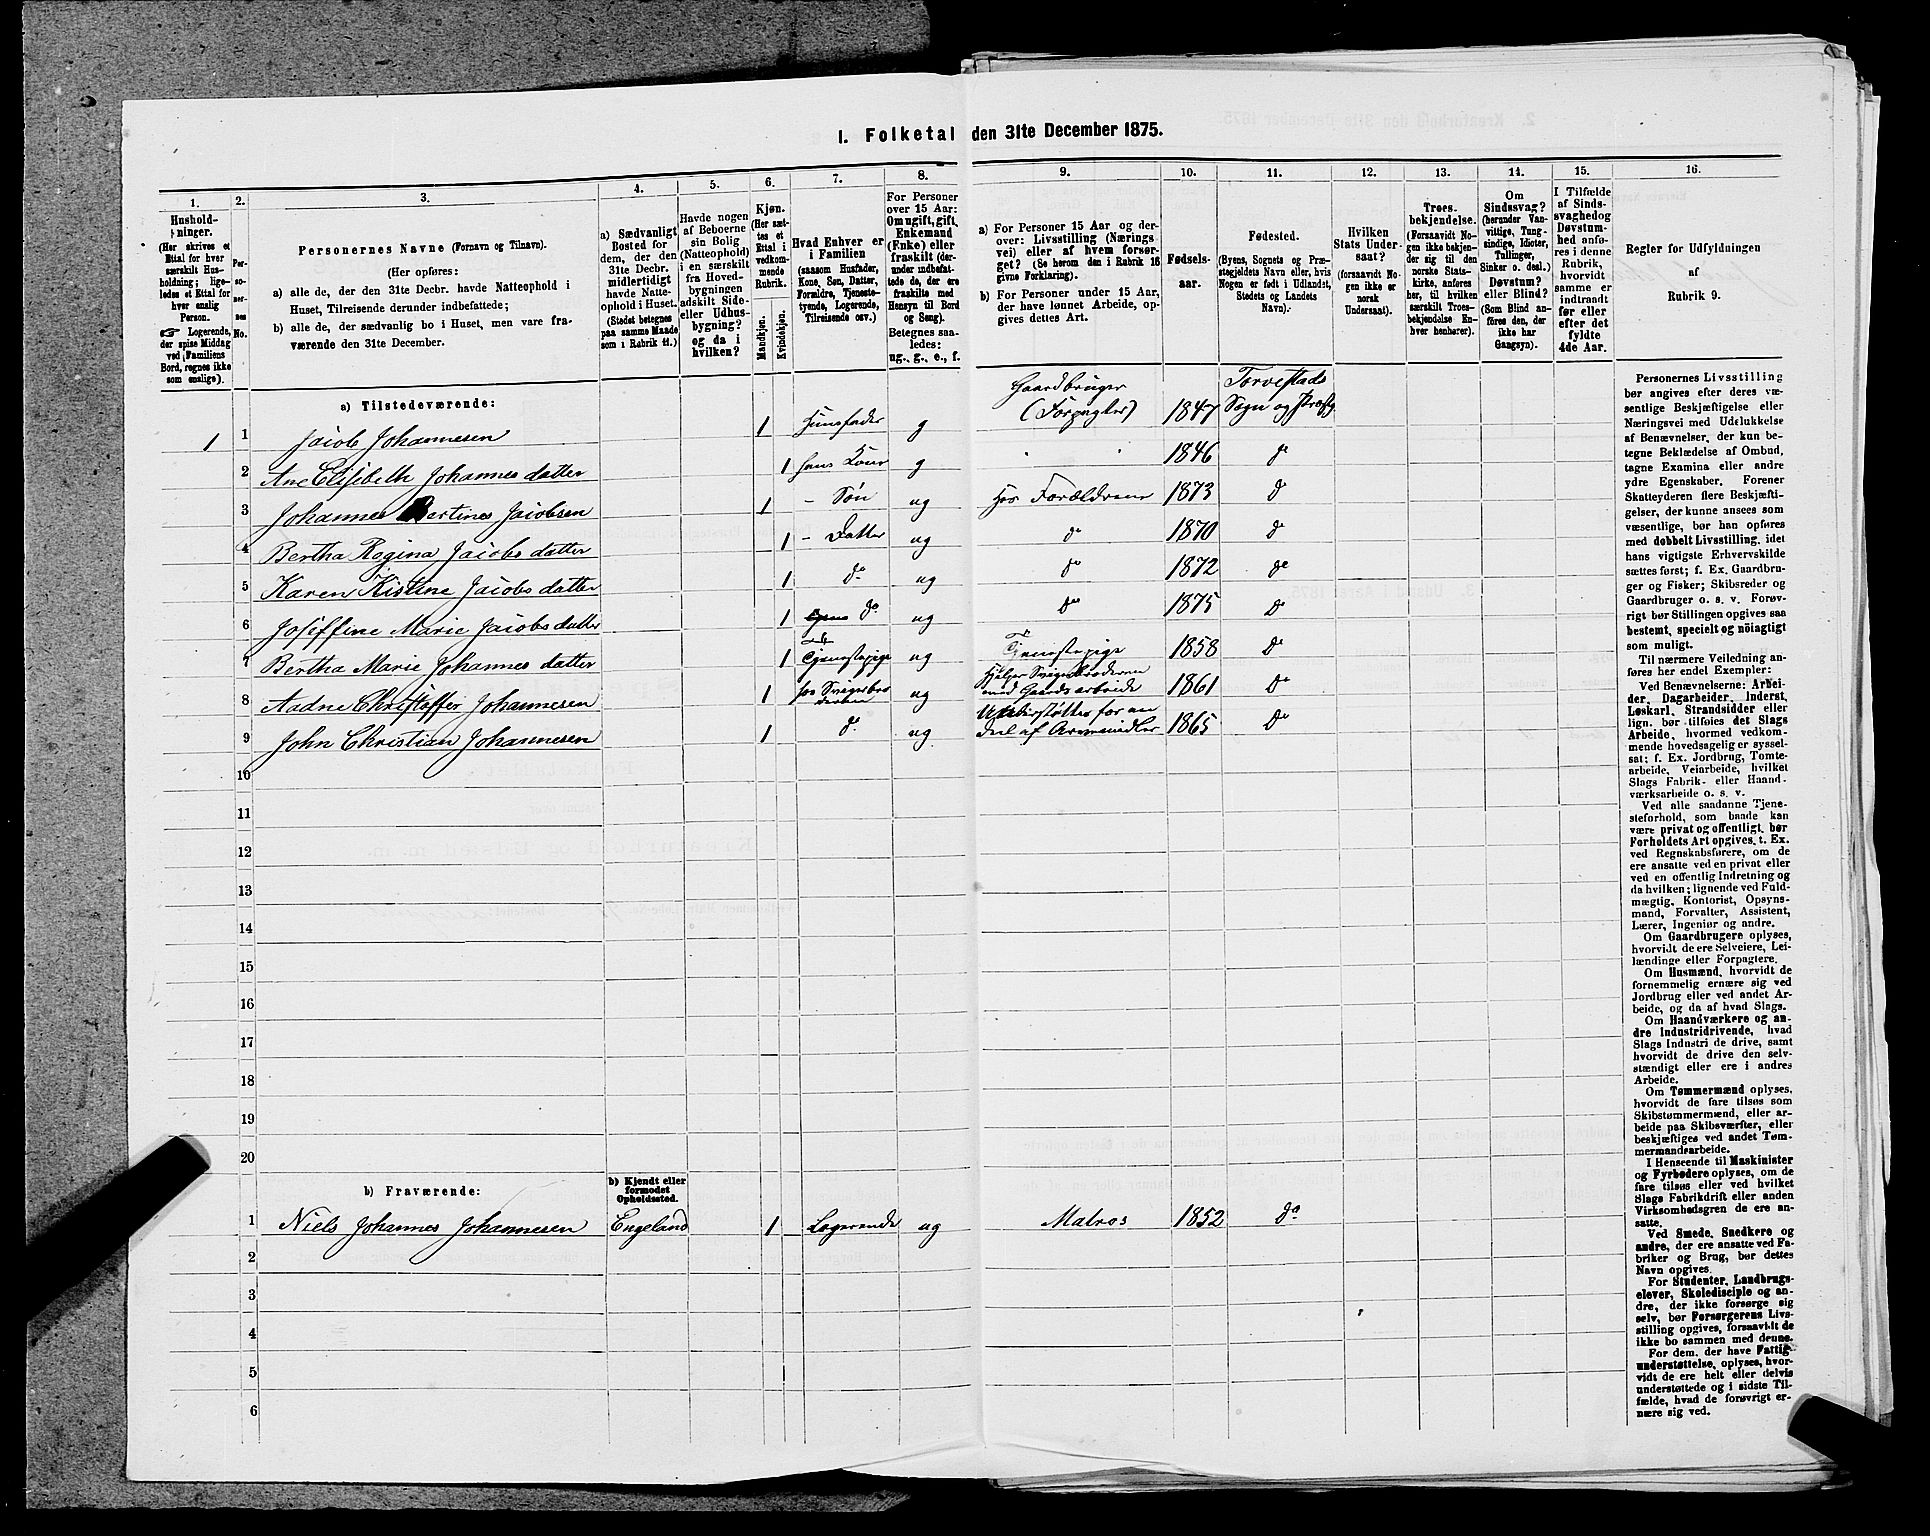 1. Folketal den 31te December 1875.
1.
2.
3.
4.
5.
6.
7.
8.
9.
10.
11.
12.
13.
14.
15.
16.
Hushold-
ninger.
(Her skrives et
Ettal for hver
særskilt Hus-
holdning; lige-
ledes et Ettal for
hver enslig
Person.
☞ Logerende,
der spise Middag
ved Familiens
Bord, regnes ikke
som enslige).
Per-
so-
ner-
nes
No.
Personernes Navne (Fornavn og Tilnavn).
(Her opføres:
a) alle de, der den 31te Decbr. havde Natteophold i
Huset, Tilreisende derunder indbefattede;
b) alle de, der sædvanlig bo i Huset, men vare fra-
værende den 31te December.
a) Sædvanligt
Bosted for
dem, der den
31te Decbr.
midlertidigt
havde Natte-
ophold i Huset.
(Stedet betegnes
paa samme Maade
som i Rubrik 11.)
Havde nogen
af Beboerne
sin Bolig
(Natteophold)
i en særskilt
fra Hoved-
bygningen
adskilt Side-
eller Udhus-
bygning?
og da i
hvilken?
Kjøn.
(Her sæt-
tes et
Ettal i
vedkom-
mende
Rubrik.
Mandkjøn.
Kvindekjøn.
Hvad Enhver er
i Familien
(saasom Husfader,
Kone, Søn, Datter,
Forældre, Tjeneste-
tyende, Logerende,
Tilreisende osv.)
For Personer
over 15 Aar:
Om ugift, gift,
Enkemand
(Enke) eller
fraskilt (der-
under indbefat-
tede de, der ere
fraskilte med
Hensyn til Bord
og Seng).
Betegnes saa-
ledes:
ug., g., e., f.
a) For Personer 15 Aar og der-
over: Livsstilling (Nærings-
vei) eller af hvem forsør-
get? (Se herom den i Rubrik 16
givne Forklaring).
b) For Personer under 15 Aar,
der have lønnet Arbeide, op-
gives dettes Art.
Fødsels-
aar.
Fødested.
(Byens, Sognets og Præ-
stegjeldets Navn eller, hvis
Nogen er født i Udlandet,
Stedets og Landets
Navn).
Hvilken
Stats Under-
saat?
(forsaavidt No-
gen ikke er
norsk
Undersaat).
Troes-
bekjendelse.
(Forsaavidt No-
gen ikke bekjen-
der sig til den
norske Stats-
kirke, anføres
her, til hvilken
særskilt Troes-
bekjendelse En-
hver henhører).
Om
Sindssvag?
(herunder Van-
vittige, Tung-
sindige, Idioter,
Tullinger,
Sinker o. desl.)
Døvstum?
eller Blind?
(Som Blind an-
føres den, der
ikke har
Gangsyn).
I Tilfælde
af Sinds-
svaghed og
Døvstum-
hed anfø-
res i denne
Rubrik,
hvorvidt
samme er
indtraadt
før eller
efter det
fyldte
4de Aar.
Regler for Udfyldningen
af
Rubrik 9.
a) Tilstedeværende:
1 1 Jacob Johannesen 1 Huusfader g Gaardbruger (Forpagter) 1847 Torvestads Sogn og Præstg.
2 Ane Elisebeth Johannes datter 1 hans Kone g 1846 do
3 Johannes Bertines Jacobsen 1 – Søn ug Hos Forældrene 1873 do
4 Bertha Regina Jacobs datter 1 – Datter ug do 1870 do
5 Karen Kistine Jacobs datter 1 do ug do 1872 do
6 Joseffine Marie Jacobs datter 1 do ug do 1875 do
7 Bertha Marie Johannes datter 1 Tjenestepige ug Tjenestepige 1858 do
8 Aadne Christoffer Johannesen 1 hos Svigerbroderen ug Hjelper Svigerbroderen med Gaards arbeide 1861 do
9 John Christian Johannesen 1 do ug Understøttes for en Deel af Armmidler 1865 do
10
11
12
13
14
15
16
17
18
19
20
b) Fraværende:
b) Kjendt eller
formodet
Opholdssted.
1 Niels Johannes Johannesen Engeland 1 Logerende ug Matros 1852 do
2
3
4
5
6
Personernes Livsstilling
bør angives efter deres væ-
sentlige Beskjæftigelse eller
Næringsvei med Udelukkelse
af Benævnelser, der kun be-
tegne Beklædelse af Ombud,
tagne Examina eller andre
ydre Egenskaber. Forener
Skatteyderen flere Beskjæfti-
gelser, der kunne ansees som
væsentlige, bør han opføres
med dobbelt Livsstilling, idet
hans vigtigste Erhvervskilde
sættes først; f. Ex. Gaardbru-
ger og Fisker; Skibsreder og
Gaardbruger o. s. v. Forøv-
rigt bør Stillingen opgives saa
bestemt, specielt og nöiagtigt
som muligt.
Til nærmere Veiledning an-
føres her endel Exempler:
Ved Benævnelserne: Arbei-
der, Dagarbeider, Inderst,
Løskarl, Strandsidder eller
lign. bør tilføies det Slags
Arbeide, hvormed vedkom-
mende hovedsagelig er syssel-
sat; f. Ex. Jordbrug, Tomte-
arbeide, Veiarbeide, hvilket
Slags Fabrik- eller Haand-
værksarbeide o. s. v.
Ved alle saadanne Tjene-
steforhold, som baade kan
være privat og offentligt, bør
Forholdets Art opgives, t. Ex.
ved Regnskabsførere, om de
ere ansatte ved en privat eller
ved en offentlig Indretning og
da hvilken; lignende ved Fuld-
mægtig, Kontorist, Opsyns-
mand, Forvalter, Assistent,
Lærer, Ingeniør og andre.
Om Gaardbrugere oplyses,
hvorvidt de ere Selveiere, Lei-
lændinge eller Forpagtere.
Om Husmænd, hvorvidt de
fornemmelig ernære sig ved
Jordbrug eller ved andet Ar-
beide, og da af hvad Slags.
Om Haandværkere og an-
dre Industridrivende, hvad
Slags Industri de drive, samt
hvorvidt de drive den selv-
stændigt eller ere i andres
Arbeide.
Om Tømmermænd oplyses,
hvorvidt de fare tilsøs som
Skibstømmermænd, eller ar-
beide paa Skibsværfter, eller
beskjæftiges ved andet Tøm-
mermandsarbeide.
I Henseende til Maskinister
og Fyrbødere oplyses, om de
fare tilsøs eller ved hvilket
Slags Fabrikdrift eller anden
Virksomhedsgren de ere an-
satte.
Ved Smede, Snedkere og
andre, der ere ansatte ved Fa-
briker og Brug, bør dettes
Navn opgives.
For Studenter, Landbrugs-
elever, Skoledisciple og an-
dre, der ikke forsørge sig
selv, bør Forsørgerens Livs-
stilling opgives, forsaavidt de
ikke bo sammen med denne.
For dem, der have Fattig-
understøttelse, oplyses, hvor-
vidt de ere helt eller delvis
understøttede og i sidste Til-
fælde, hvad de forøvrigt er-
nære sig ved.